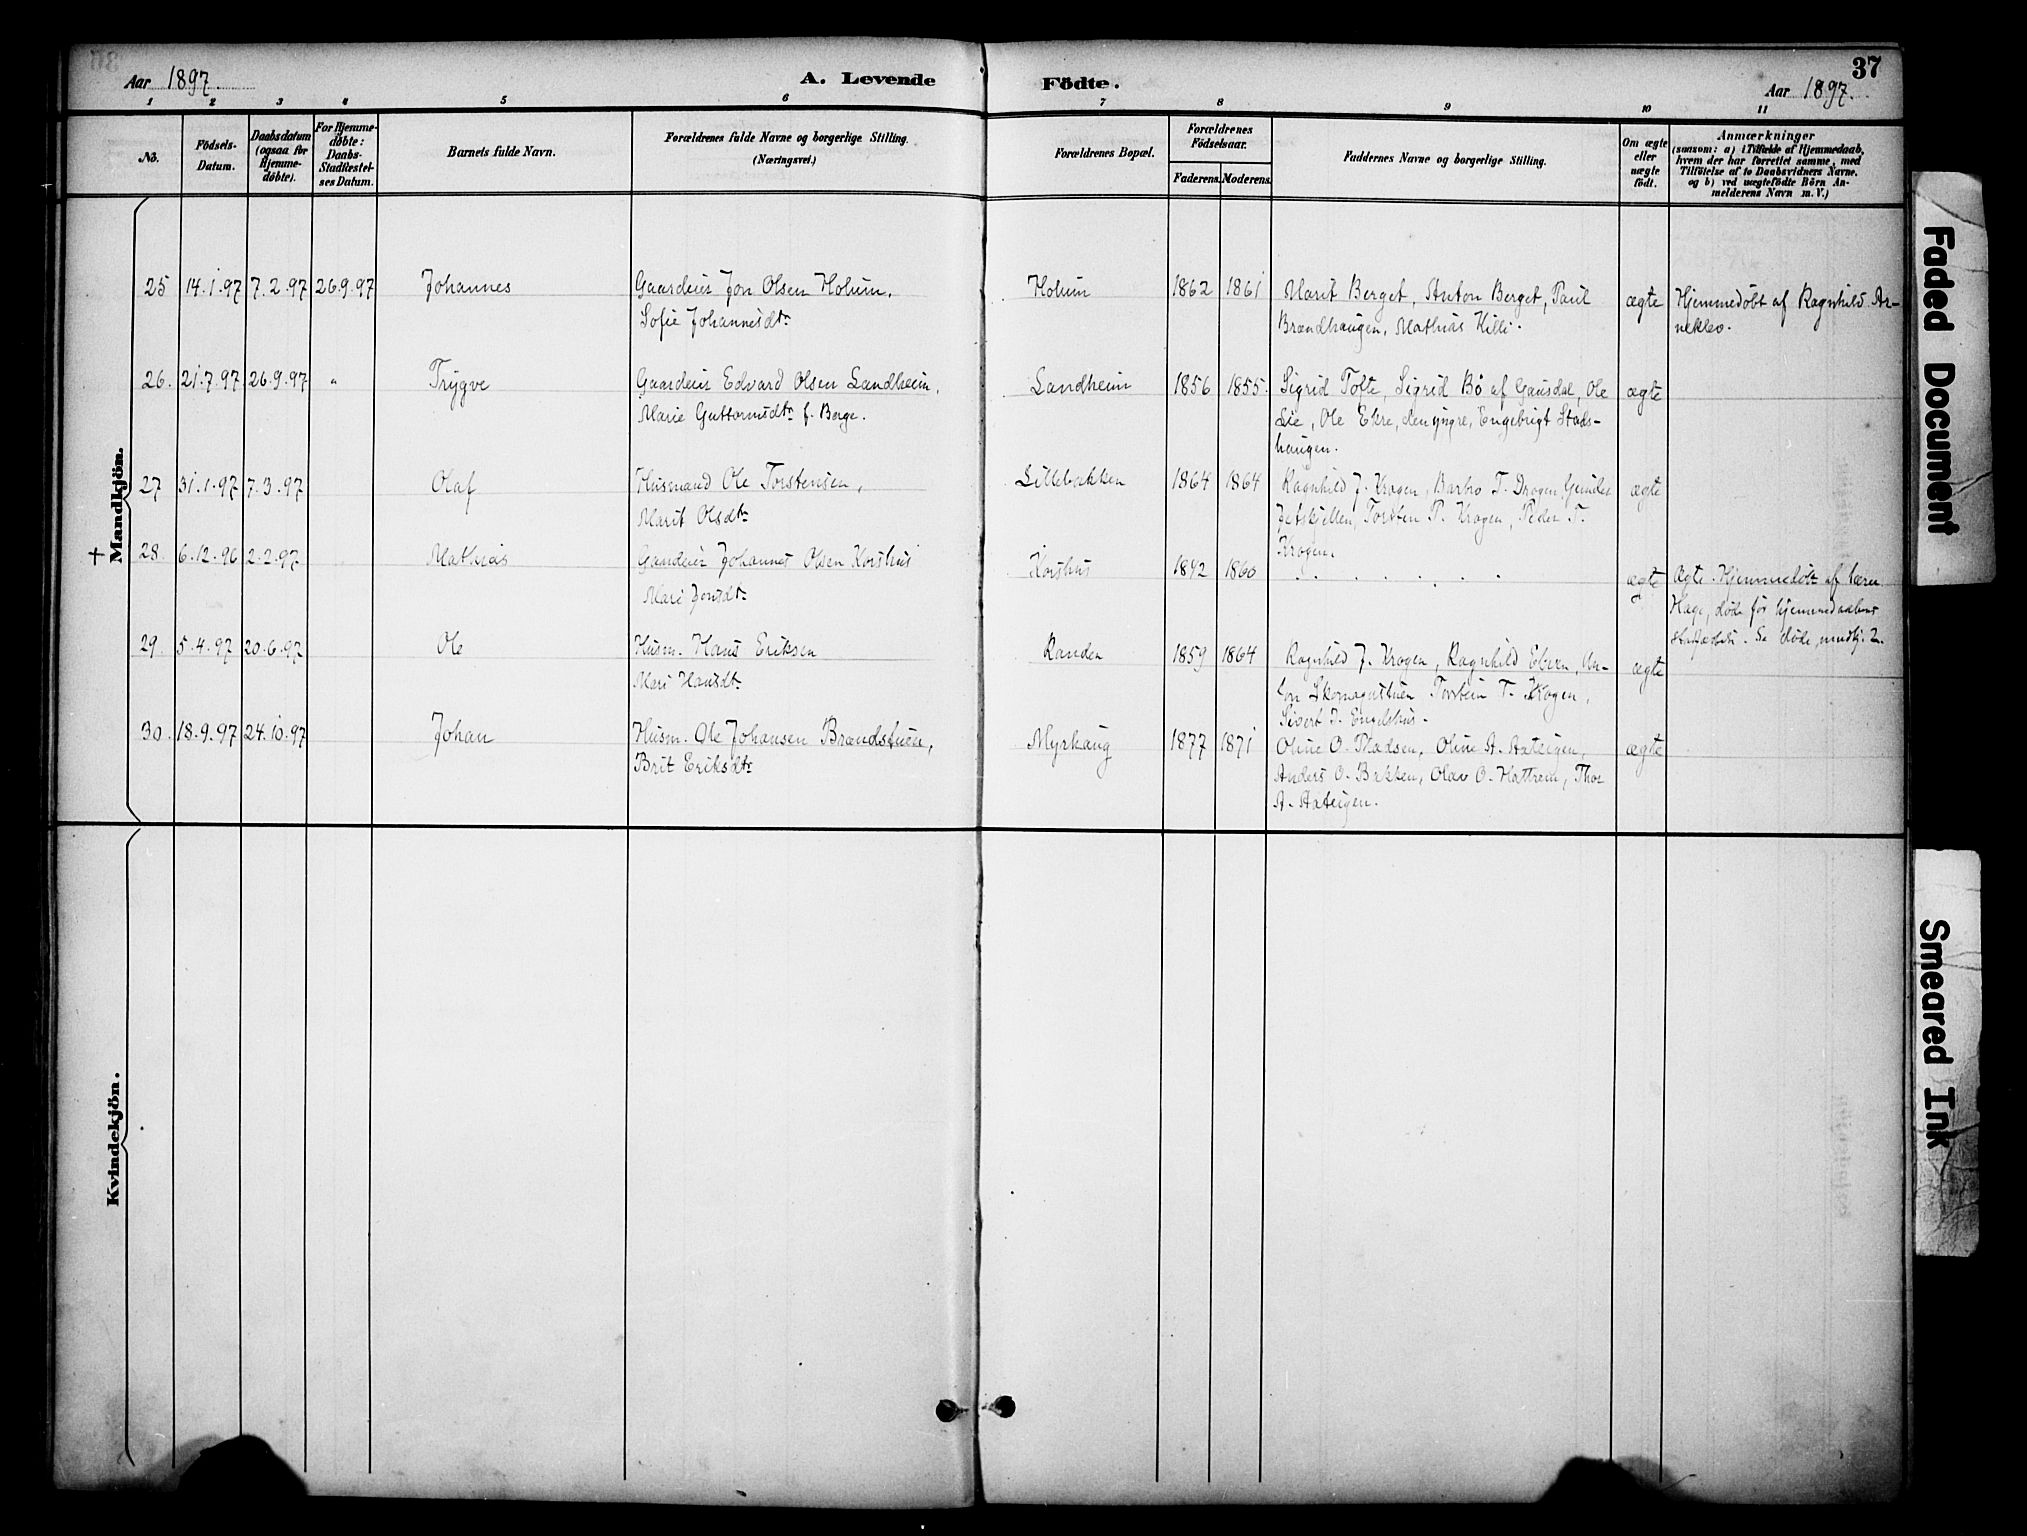 37
Aar 1897.
A. Levende Födte.
Aar 1897.
1 2 3 4 5 6 7 8 9 10 11
No.
Födsels-
Datum.
Daabsdatum
(ogsaa for
Hjemme-
døbte).
For Hjemme-
døbte:
Daabs-
Stadfæstel-
ses Datum.
Barnets fulde Navn.
Forældrenes fulde Navne og borgerlige Stilling.
(Næringsvei.)
Forældrenes Bopæl.
Forældrenes
Födselsaar.
Faderens. Moderens.
Faddernes Navne og borgerlige Stilling.
Om ægte
eller
uægte
födt.
Anmærkninger
(saasom: a) i Tilfælde af Hjemmedaab,
hvem der har forrettet samme, med
Tilföielse af to Daabsvidners Navne.
og b) ved uægtefödte Börn An-
melderens Navn m. V.)
Mandkjön.
25 14.1.97 7.2.97 26.9.97 Johannes Gaardeier Jon Olsen Holum, Holum 1862 1861 Marit Berget, Anton Berget, Paul ægte Hjemmedøbt af Ragnhild Ar-
Sofie Johannesdtr Brændhaugen, Mathias Killi. neklev.
26. 21.7.97 26.9.97 " Trygve Gaardeier Edvard Olsen Landheim, Landheim 1856 1855. Sigrid Tofte, Sigrid Bö af Gausdal, Ole ægte
Marie Guttormsdtr f. Berge. Lie, Ole Ekre, den yngre, Engebrigt Stads-
haugen.
27 31.1.97 7.3.97 Olaf Husmand Ole Torstensen, Lillebakken 1864 1864 Ragnhild J. Krogen, Barbro T. Krogen, ægte
Marit Olsdtr Torsten P. Krogen, Peder T.
Krogen.
† 28. 6.12.96 2.2.97 Mathias Gaardeier Johannes Olsen Korshus Korshus 1842 1860 ægte Ægte. Hjemmedøbt af lærer
Mari Jonsdtr Hage, døde før hjemmedaabens
stadfæstelse. Se døde, mndkj. 2.
29. 5.4.97 20.6.97 Ole Husm. Hans Eriksen Randen 1859 1864 Ragnhild J. Krogen, Ragnhild Ekern, An- ægte
Mari Hansdtr ton Skomagerstuen Torstein T. Krogen,
Sivert J. Engelshus.
30. 18.9.97 24.10.97 Johan Husm. Ole Johansen Brændstuen, Myrhaug 1877 1871 Oline O. Pladsen, Oline A. ægte
Brit Eriksdtr Anders O. Bakken, Olav O. Hattrem, Thor
A.
Kvindekjön.
Faded Document
Smeared Ink